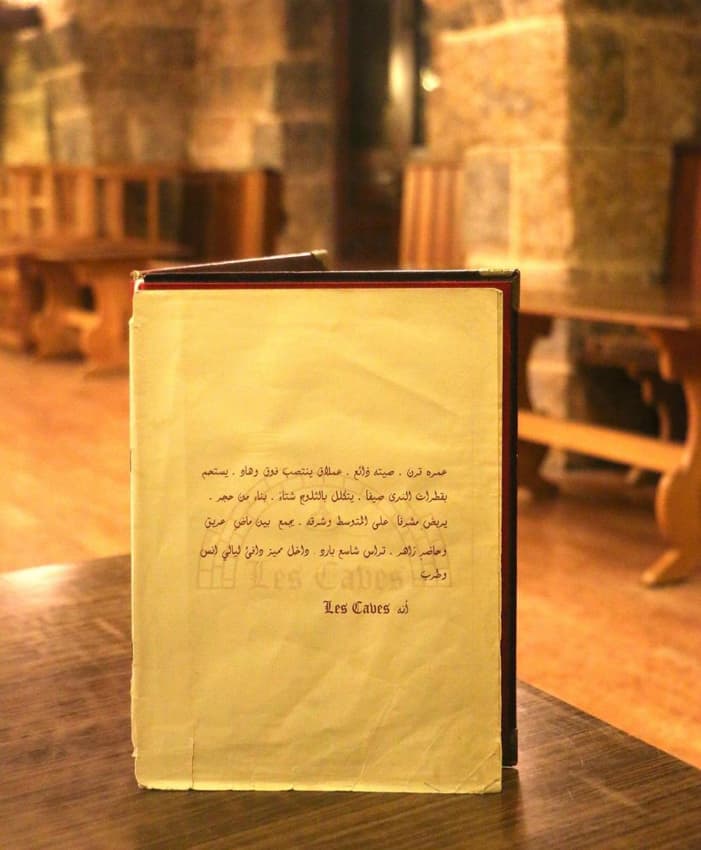 عمره قرن . صيته ذائع . عملاق ينتصب فوق وهاد . يستحم
بقطرات الندى صيفاً . يتكلل بالثلوج شتاءً . بناء من حجر .
يربض مشرفاً على المتوسط وشرقه . يجمع بين ماضٍ عريق
وحاضر زاهر . تراس شاسع بارد . داخل مميز دافئ ليالي انس
وطرب
Les Caves
أنه Les Caves